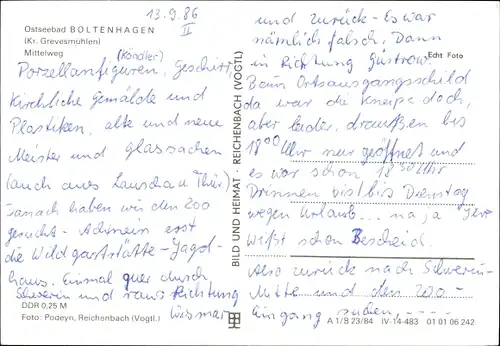 13.9.86
II
Ostseebad BOLTENHAGEN
(Kr. Grevesmühlen)
Mittelweg
(Kändler)
Porzellanfiguren, Geschirr,
Kirchliche Gemälde und
Plastiken, alte und neue
Meister und Glassachen
(auch aus Lauscha Thür.)
Danach haben wir den Zoo
gesucht - Ach nein erst
die Wildgaststätte - Jagd-
haus. Einmal quer durch
Schwerin und raus Richtung
Wismar
DDR 0,25 M
Foto: Podeyn, Reichenbach (Vogtl.)
BILD UND HEIMAT · REICHENBACH (VOGTL)
und zurück - Es war
nämlich falsch. Dann
in Richtung Güstrow.
Echt Foto
Beim Ortsausgangsschild
da war die Kneipe doch,
aber leider, draußen bis
18°° Uhr nur geöffnet und
es war schon 18³⁰ Uhr
Drinnen bis Dienstag
wegen Urlaub... na ja
weißt schon Bescheid.
Also zurück nach Schwerin-
Mitte und den Zoo-
Eingang suchen, - - -
A 1/B 23/84 IV-14-483 01 01 06 242